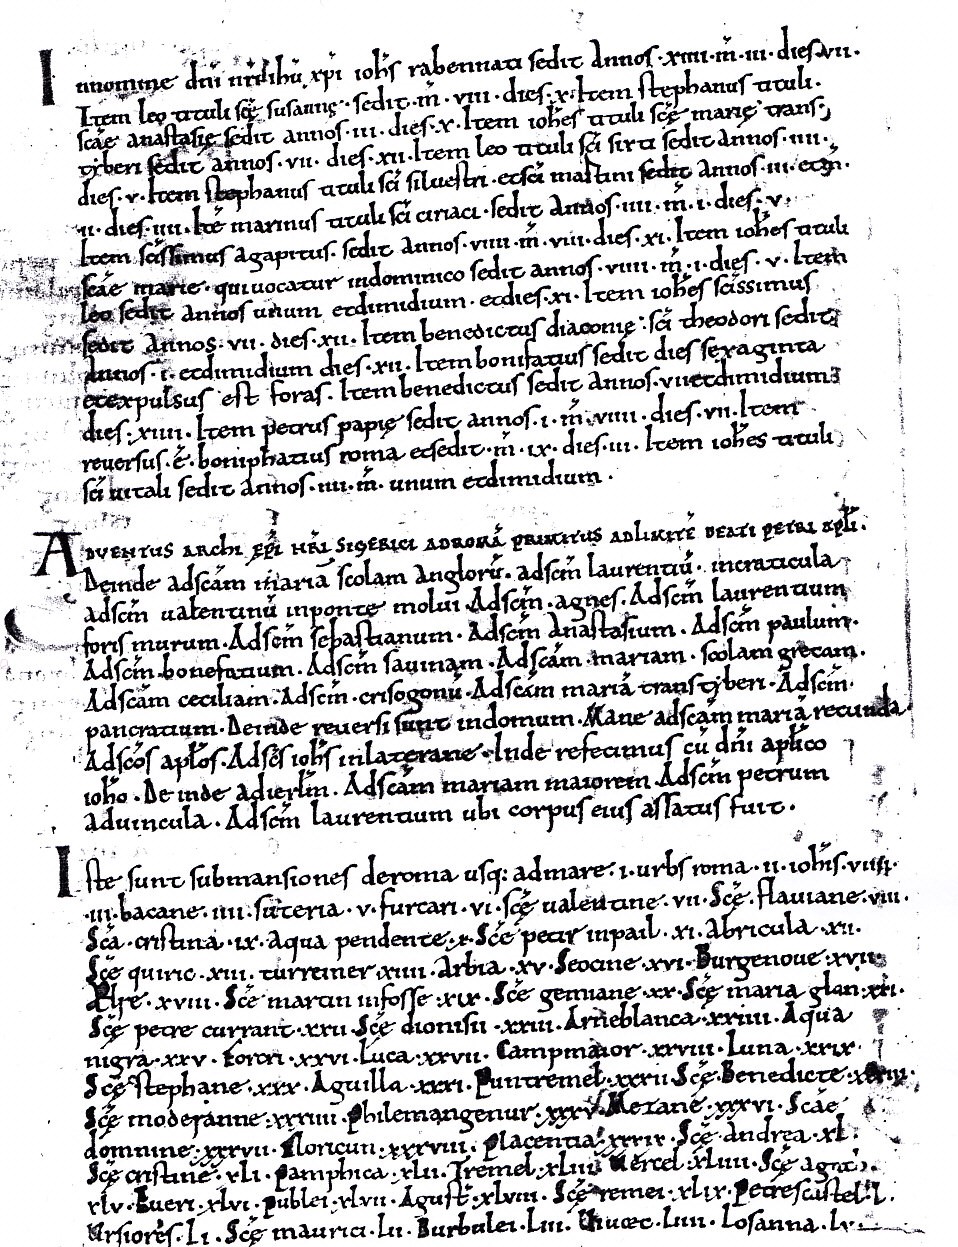 In nomine dni nri ihu xpi iohs rabennati sedit annos · xiiii · m̄ · iii · dies · vii ·
Item leo tituli scę susannę · sedit · m̄ · viii · dies · x · Item stephanus tituli ·
scae anastasię sedit annos · iii · dies · x · Item iohes tituli scę marię trans
tyberi sedit annos · vii · dies · xii · Item leo tituli sci sixti sedit annos · iiii ·
dies · v · Item stephanus tituli sci siluestri · et sci martini sedit annos · iii · et m̄ ·
ii · dies · iiii · Ite marinus tituli sci ciriaci · sedit annos · iiii · m̄ · i · dies · v ·
Item scissimus agapitus · sedit annos · viiii · m̄ · viii · dies · xi · Item iohes tituli
scae marie · qui uocatur in dominico sedit annos · viiii · m̄ · i · dies · v · Item
leo sedit annos unum et dimidium · et dies · xi · Item iohes scissimus
sedit annos · vii · dies · xii · Item benedictus diaconię · sci theodori sedit
annos · i · et dimidium dies · xii · Item bonifatius sedit dies sexaginta
et expulsus est foras · Item benedictus sedit annos · vii et dimidium
dies · xiiii · Item petrus papię sedit annos · i · m̄ · viiii · dies · vii · Item
reuersus · ē · boniphatius roma et sedit · m̄ · ix · dies · iii · Item iohes tituli
sci uitali sedit annos · iiii · m̄ · unum et dimidium ·
Aduentus archi epi nri sigerici ad romā primitus ad limitē beati petri apli ·
Deinde ad scam mariā scolam anglorū · ad scm laurentiū · in craticula
ad scm ualentinū in ponte molui · Ad scm · agnes · Ad scm laurentium
foris murum · Ad scm sebastianum · Ad scm anastasium · Ad scm paulum ·
Ad scm bonefatium · Ad scm sauinam · Ad scam mariam · scolam grecam ·
Ad scam ceciliam · Ad scm · crisogonū · Ad scam mariā transtyberi · Ad scm ·
pancratium · Deinde reuersi sunt in domum · Mane ad scam mariā recunda
Ad scos aplos · Ad scs iohs in laterane · Inde refecimus cū dni aplico
ioho · Deinde ad ierlm · Ad scam mariam maiorem · Ad scm petrum
ad uincula · Ad scm laurentium ubi corpus eius assatus fuit ·
Iste sunt submansiones de roma usq; ad mare · i · urbs roma · ii · iohis · viiii ·
· iii · bacane · iiii · suteria · v · furcari · vi · scę ualentine · vii · Scę · flauiane · viii ·
Sca · cristina · ix · Aqua pendente · x · Scę petir in pail · xi · Abricula · xii ·
Scę quiric · xiii · turreiner · xiiii · Arbia · xv · Seocine · xvi · Burgenoue · xvii ·
Ælse · xviii · Scę martin in fosse · xix · Scę gemiane · xx · Scę maria glan · xxi ·
Scę petre currant · xxii · Scę dionisii · xxiii · Arneblanca · xxiiii · Aqua
nigra · xxv · Forcri · xxvi · Luca · xxvii · Campmaior · xxviii · Luna · xxix ·
Scę stephane · xxx · Aguilla · xxxi · Puntremel · xxxii · Scę · Benedicte · xxxiii ·
Scę moderanne · xxxiiii · Philemangenur · xxxv · Metane · xxxvi · Scae
domnine · xxxvii · Floricun · xxxviii · Placentia · xxxix · Scę · andrea · xl ·
Scę cristine · xli · Pamphica · xlii · Tremel · xliii · Uercel · xliiii · Scę agath ·
xlv · Eueri · xlvi · Publei · xlvii · Agust · xlviii · Scę remei · xlix · Petrescastel · l ·
Ursiores · li · Scę maurici · lii · Burbulei · liii · Uiuaec · liiii · Losanna · lv ·